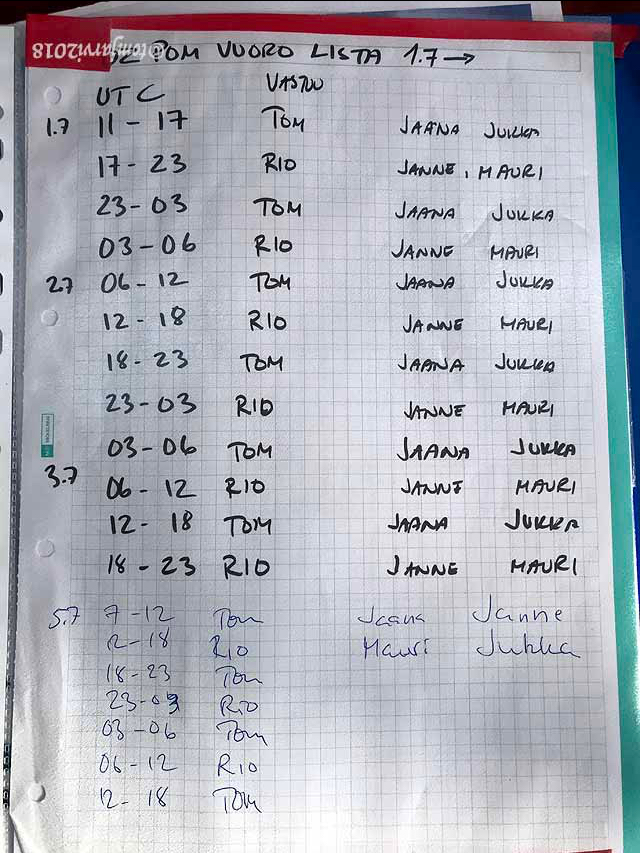 @tomjarvi2018
POM VUORO LISTA 1.7 →
UTC VASTUU
1.7 11 - 17 TOM JAANA JUKKA
17 - 23 RIO JANNE, MAURI
23 - 03 TOM JAANA JUKKA
03 - 06 RIO JANNE MAURI
2.7 06 - 12 TOM JAANA JUKKA
12 - 18 RIO JANNE MAURI
18 - 23 TOM JAANA JUKKA
23 - 03 RIO JANNE MAURI
03 - 06 TOM JAANA JUKKA
3.7 06 - 12 RIO JANNE MAURI
12 - 18 TOM JAANA JUKKA
18 - 23 RIO JANNE MAURI
5.7 7 - 12 Tom Jaana Janne
12 - 18 RIO Mauri Jukka
18 - 23 Tom
23 - 03 RIO
03 - 06 Tom
06 - 12 RIO
12 - 18 TOM